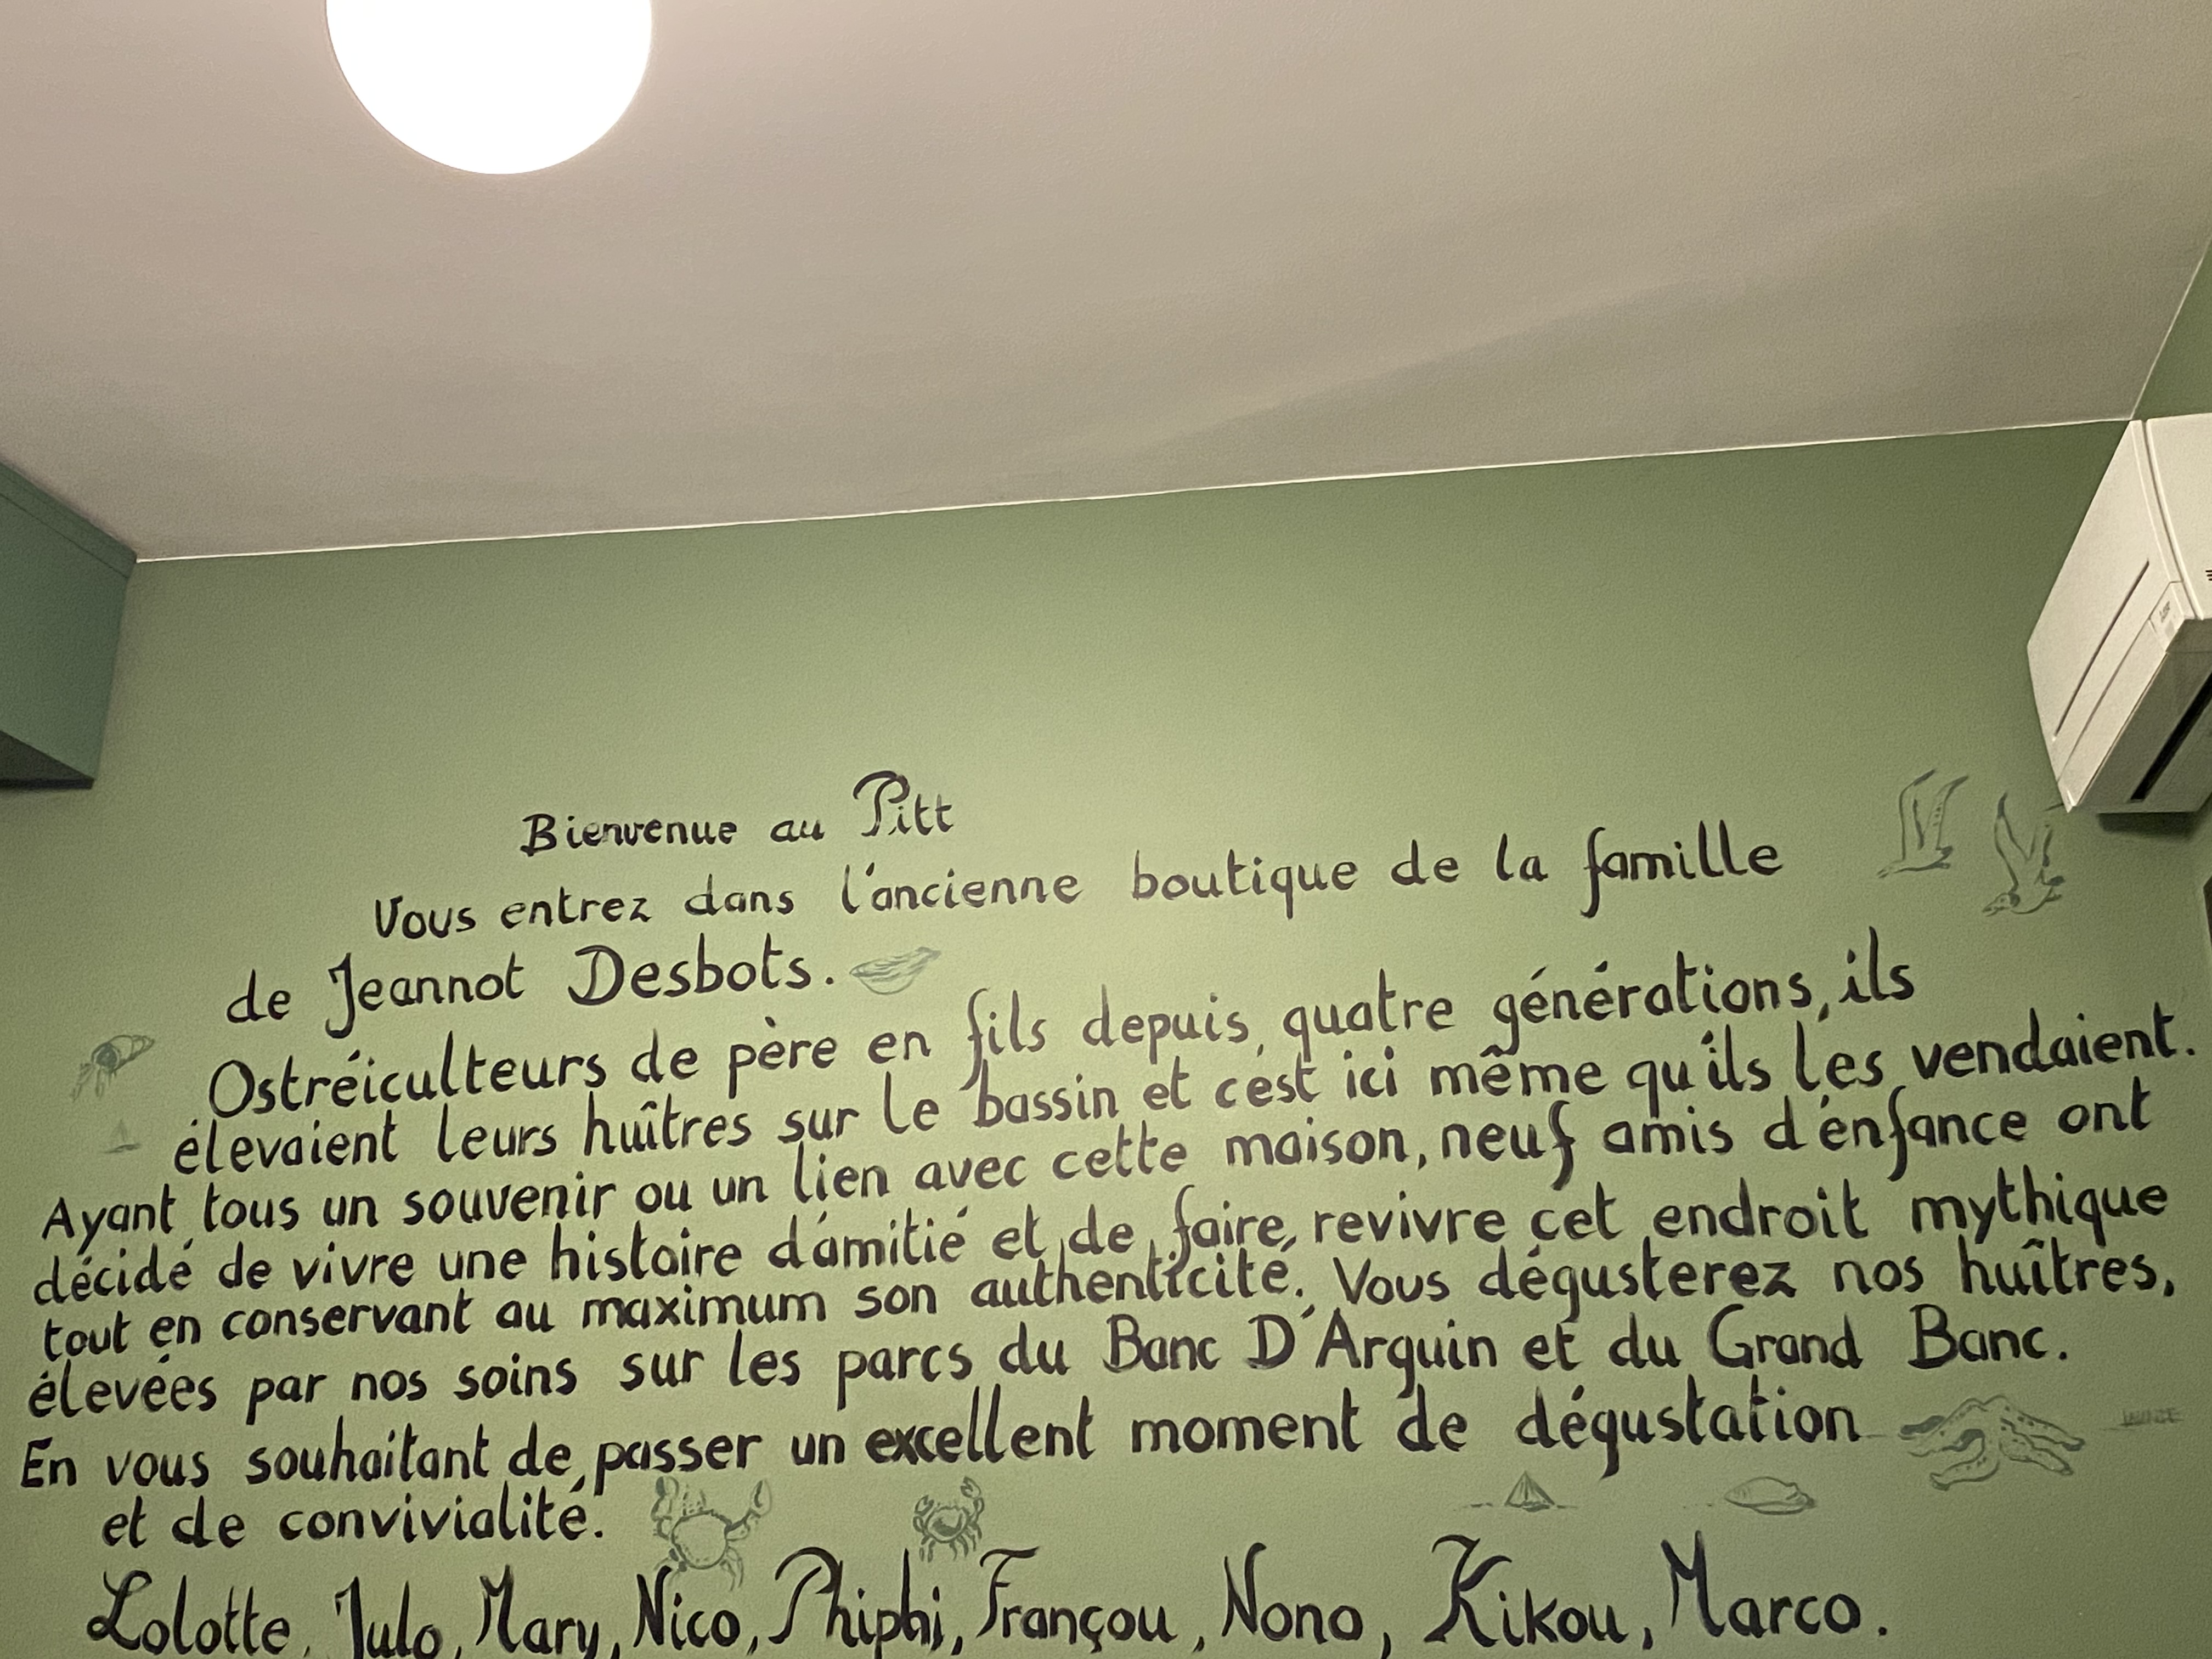 Bienvenue au Pitt
Vous entrez dans l'ancienne boutique de la famille
de Jeannot Desbots.
Ostréiculteurs de père en fils depuis quatre générations, ils
élevaient leurs huîtres sur le bassin et c'est ici même qu'ils les vendaient.
Ayant tous un souvenir ou un lien avec cette maison, neuf amis d'enfance ont
décidé de vivre une histoire d'amitié et de faire revivre cet endroit mythique
tout en conservant au maximum son authenticité. Vous dégusterez nos huîtres,
élevées par nos soins sur les parcs du Banc D'Arguin et du Grand Banc.
En vous souhaitant de passer un excellent moment de dégustation
et de convivialité.
Lolotte, Julo, Mary, Nico, Phiphi, Françou, Nono, Kikou, Marco.